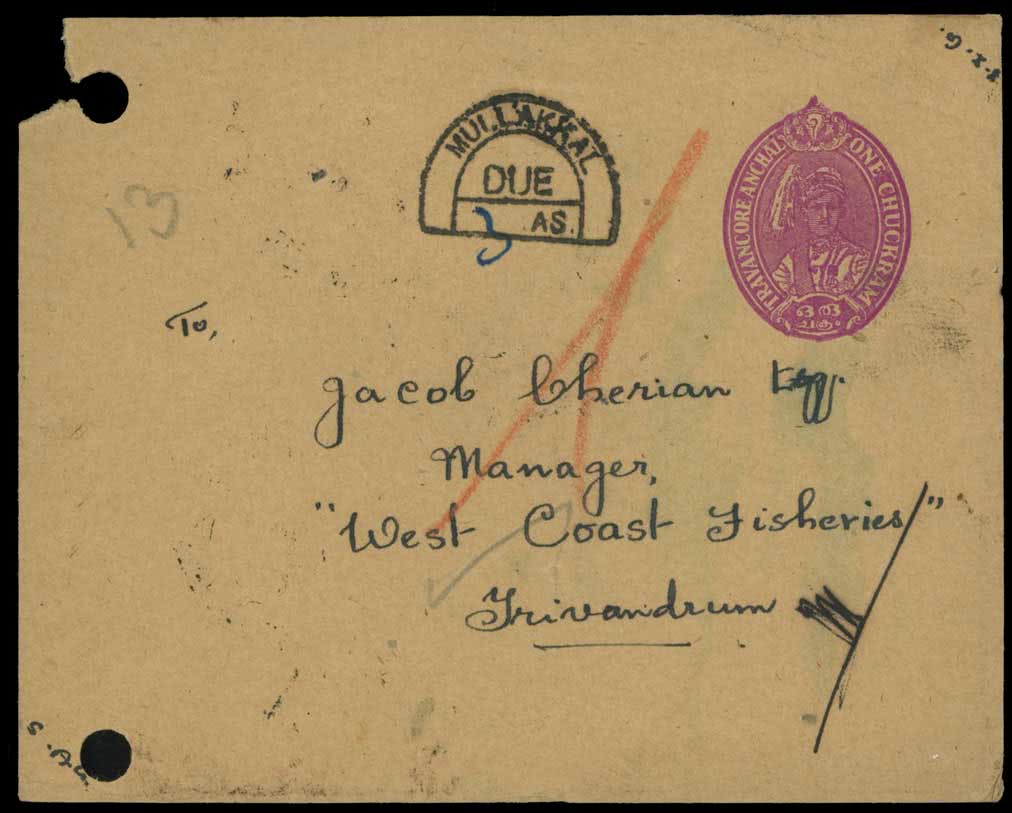 13
MULLAKKAL
DUE
3 AS.
TRAVANCORE ANCHAL ONE CHUCKRAM
ഒരു
ചക്രം
To,
Jacob Cherian Esq.
Manager,
"West Coast Fisheries"
Trivandrum